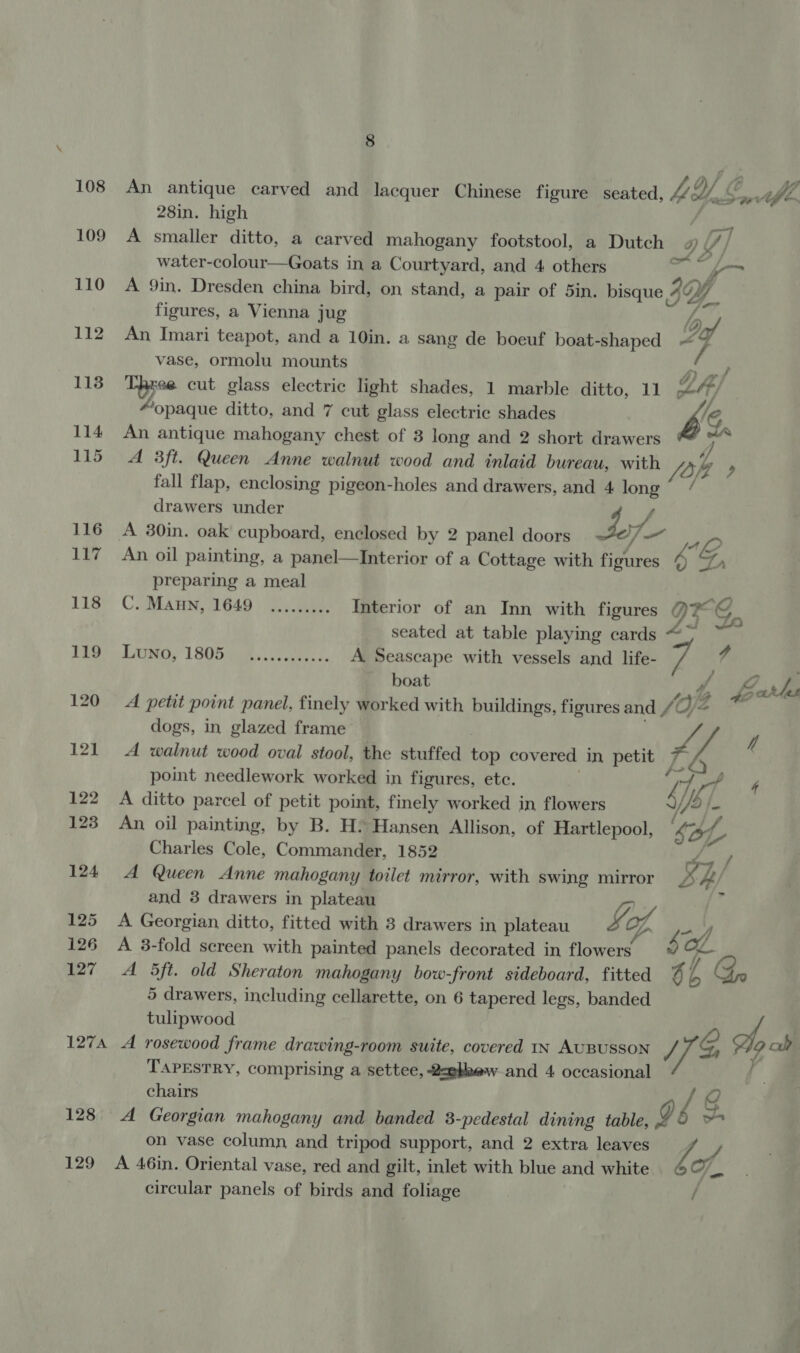 8
108 An antique carved and lacquer Chinese figure seated,
28in. high
109 A smaller ditto, a carved mahogany footstool, a Dutch
water-colour—Goats in a Courtyard, and 4 others
110 A 9in. Dresden china bird, on stand, a pair of 5in. bisque
figures, a Vienna jug
112 An Imari teapot, and a 10in. a sang de boeuf boat-shaped
vase, ormolu mounts
113 Three cut glass electric light shades, 1 marble ditto, 11
opaque ditto, and 7 cut glass electric shades
114 An antique mahogany chest of 3 long and 2 short drawers
115 A 3ft. Queen Anne walnut wood and inlaid bureau, with
fall flap, enclosing pigeon-holes and drawers, and 4 long
drawers under
116 A 30in. oak cupboard, enclosed by 2 panel doors
117 An oil painting, a panel—Interior of a Cottage with figures
preparing a meal
118 C. MAHN, 1649 ......... Interior of an Inn with figures
seated at table playing cards
119 LUNO, 1805 ............ A Seascape with vessels and life-
boat
120 A petit point panel, finely worked with buildings, figures and
dogs, in glazed frame
121 A walnut wood oval stool, the stuffed top covered in petit
point needlework worked in figures, etc.
122 A ditto parcel of petit point, finely worked in flowers
123 An oil painting, by B. H. Hansen Allison, of Hartlepool,
Charles Cole, Commander, 1852
124 A Queen Anne mahogany toilet mirror, with swing mirror
and 3 drawers in plateau
125 A Georgian ditto, fitted with 3 drawers in plateau
126 A 3-fold screen with painted panels decorated in flowers
127 A 5ft. old Sheraton mahogany bow-front sideboard, fitted
5 drawers, including cellarette, on 6 tapered legs, banded
tulipwood
127A A rosewood frame drawing-room suite, covered IN AUBUSSON
TAPESTRY, comprising a settee, and 4 occasional
chairs
128 A Georgian mahogany and banded 3-pedestal dining table,
on vase column and tripod support, and 2 extra leaves
129 A 46in. Oriental vase, red and gilt, inlet with blue and white
circular panels of birds and foliage